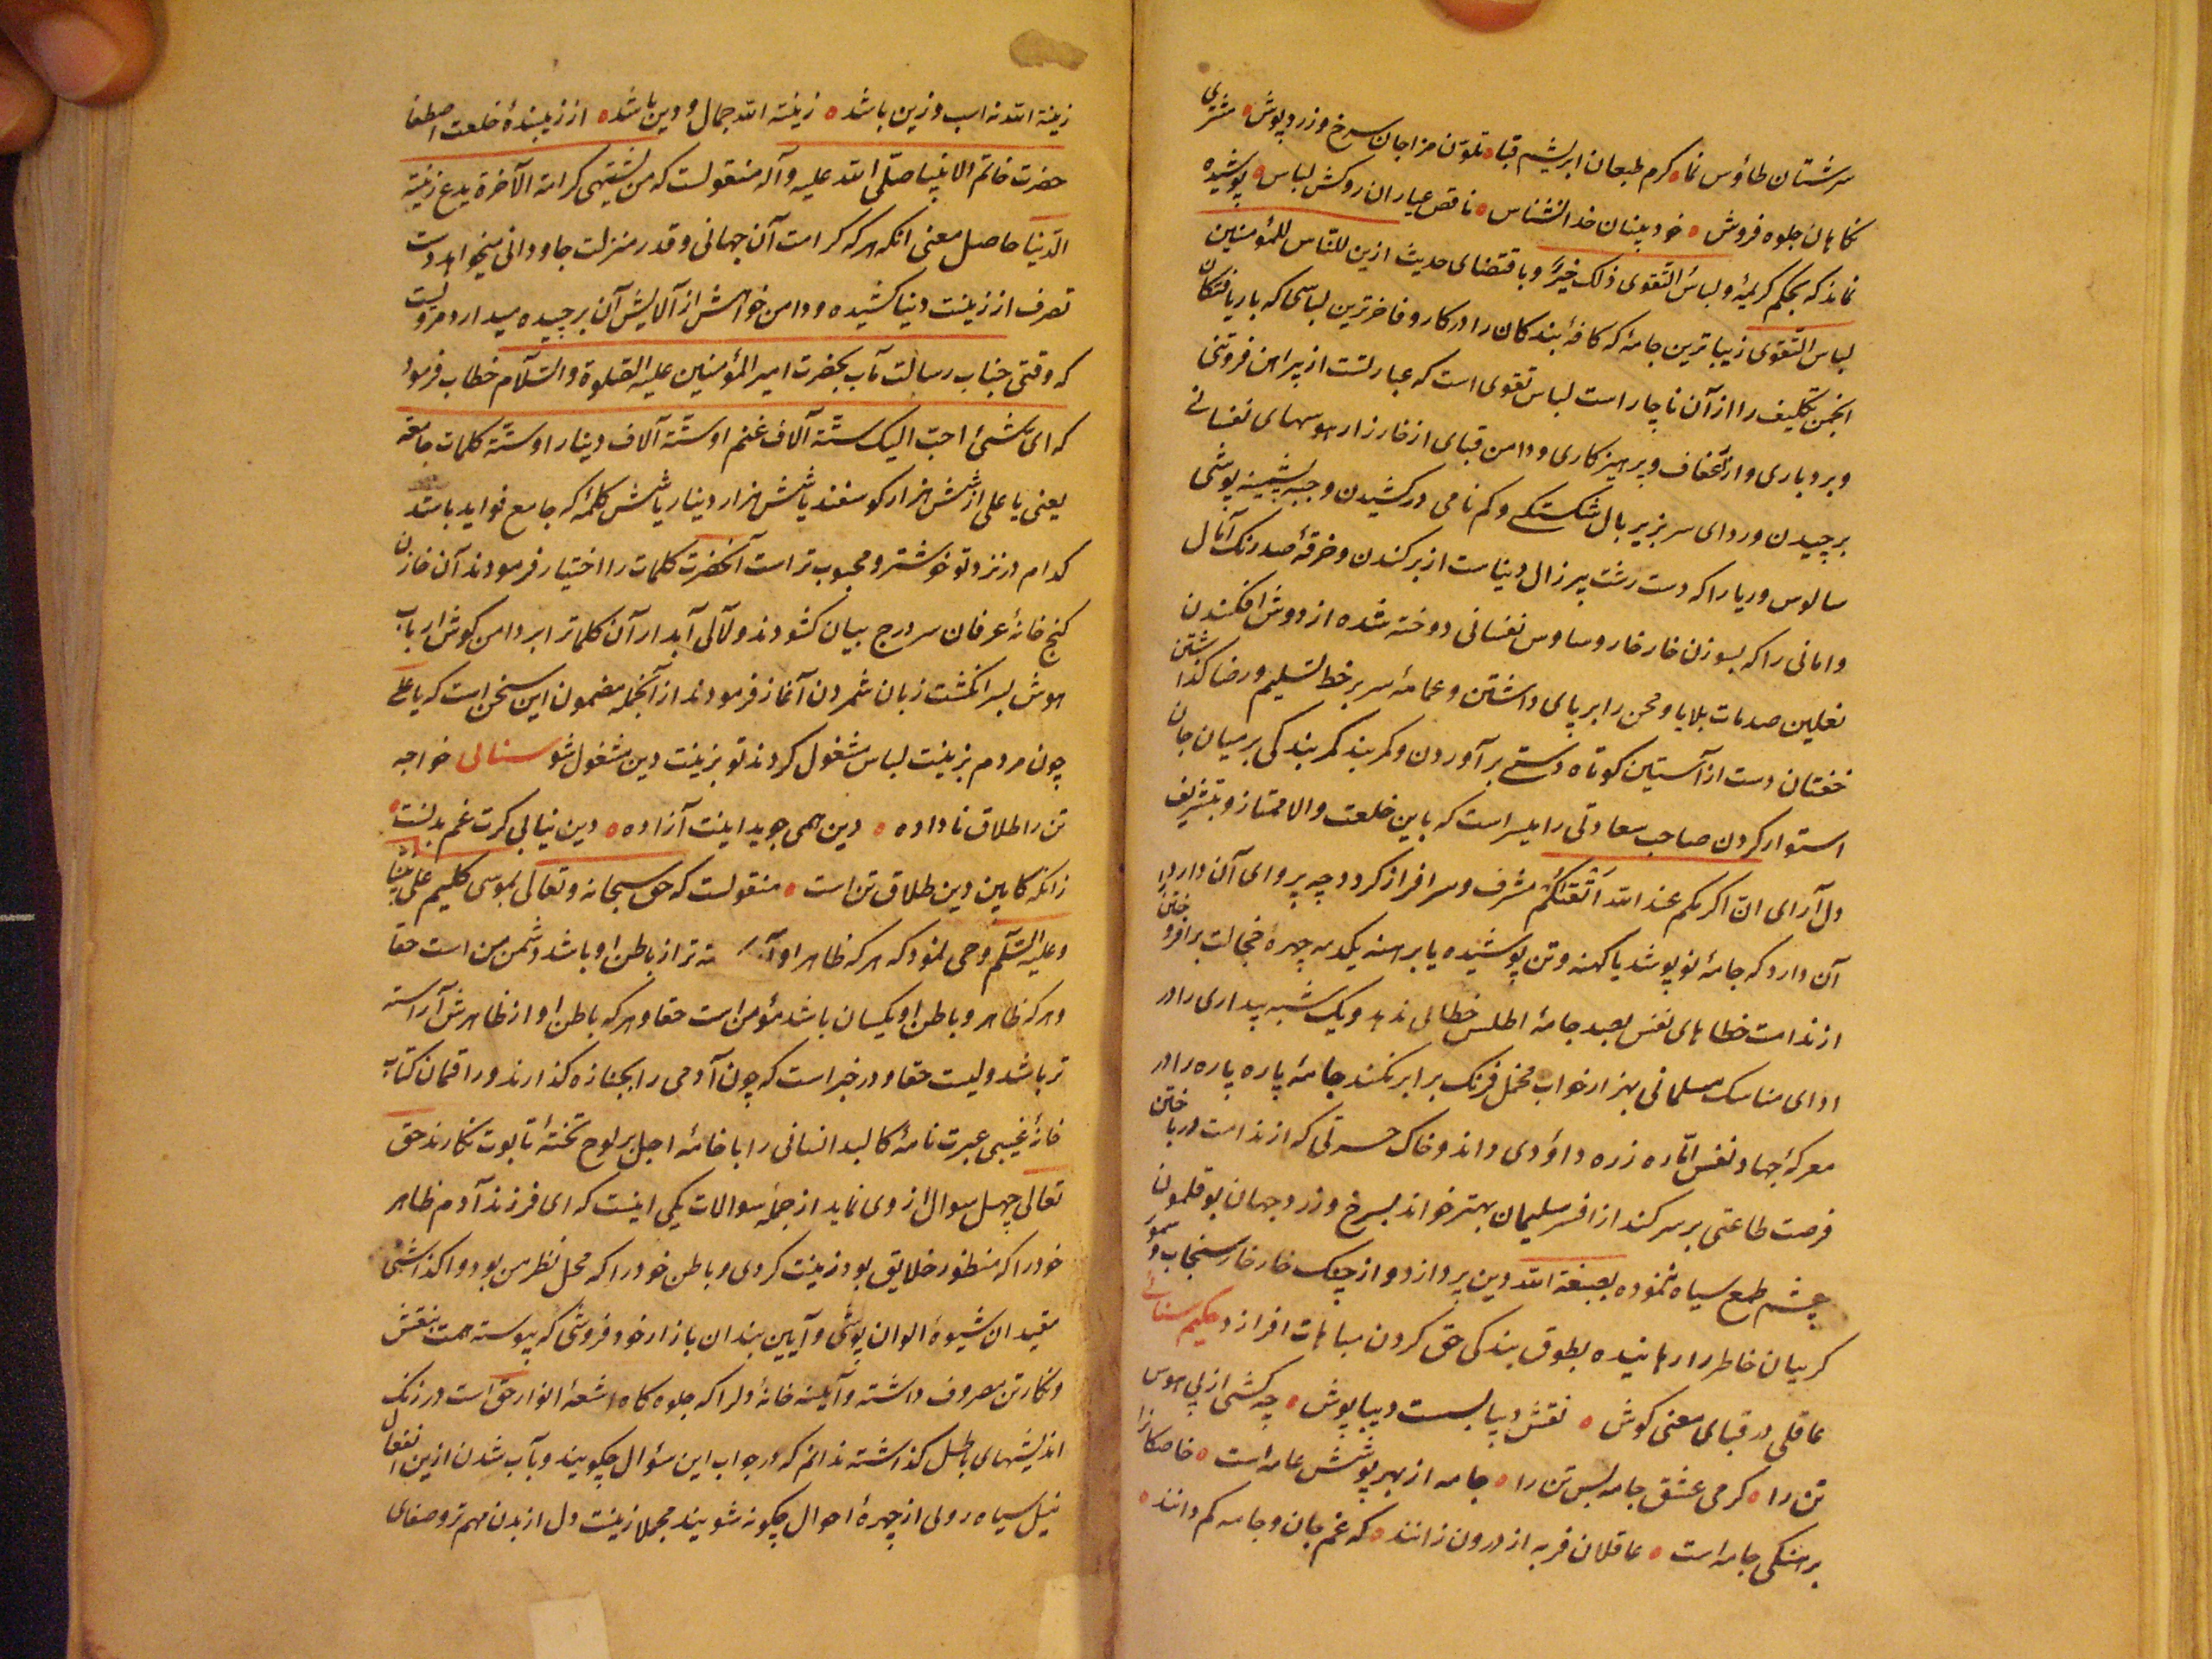 سرشتان طاؤس نما • کرم طبعان ابریشم قبا • تلون مزاجان سرخ و زرد پوش • مشتری
نکاهان جلوه فروش • خودبینان خدانشناس • ناقص عیاران روکش لباس • پوشیده
نماند که بحکم کریمهٔ ولباسُ التَّقوی ذلک خیرٌ و باقتضای حدیث ازین للنّاس للمؤمنین
لباس التّقوی زیباترین جامهٔ که کافهٔ بندکان را در کار و فاخرترین لباسی که باریافتکان
انجمن تکلیف را از آن ناچار است لباس تقوی است که عبارتست از پیراهن فروتنی
و بردباری و ازار عفاف و پرهیزکاری و دامن قبای از خارزار هوسهای نفسانی
برچیدن و ردای سر بزیر بال شکستکی و کم نامی در کشیدن و جبهٔ پشمینه پوشی
سالوس و ریا را که دست رشت پیرزال دنیاست از بر کندن و خرقهٔ صد رنک آمال
و امانی را که بسوزن خار خار وساوس نفسانی دوخته شده از دوش افکندن
نعلین صدمات بلایا و محن را بر پای داشتن و عمامهٔ سر بر خط تسلیم و رضا کذاشتن
خفتان دست از آستین کوتاه دستی برآوردن و کمربند کمر بندکی بر میان جان
استوار کردن صاحب سعادتی را میسر است که باین خلعت والا ممتاز و بتشریف
دل آرای انّ اکرمکم عند الله اَتْقیٰکُم مشرف و سرافراز کردد چه پروای آن دارد
آن دارد که جامهٔ نو پوشد یا کهنه و تن پوشیده یا برهنه یکدمه چهرهٔ خجالت برافروختن
از ندامت خطاهای نفس بصد جامهٔ اطلس خطائی ندهد و یک شبه بیداری را در
ادای مناسک مسلمانی بهزار خواب مخمل فرنک برابر نکند جامهٔ پاره پاره را در
معرکهٔ جهاد نفس امّاره زره داؤدی داند و خاک حسرتی که از ندامت درباختن
فرصت طاعتی بر سر کند از افسر سلیمان بهتر خواند بسرخ و زرد جهان بوقلمون
چشم طمع سیاه ننموده بصبغة الله دین پردازد و از چنک خار خار سنجاب و سمور
کریبان خاطر را رهانیده بطوق بندکی حق کردن مباهات افرازد حکیم سنائی
عاقلی در قبای معنی کوش • نقش دیبا بست دیبا پوش • چه کشی از پی هوس
تن را • کرمی عشق جامه بس تن را • جامه از بهر پوشش عامه است • خاصکانرا
برهنکی جامه است • عاقلان فربه از درون زانند • که غم جان و جامه کم دانند •
زینة الله نه اسب و زین باشد • زینة الله جمال و دین باشد • از زیبندهٔ خلعت اصطفا
حضرت خاتم الانبیا صلّی الله علیه وآله منقولست که من یشتهی کرامة الآخرة یدع زینة
الدّنیا حاصل معنی انکه هر که کرامت آن جهانی و قدر منزلت جاودانی میخواهد دست
تصرف از زینت دنیا کشیده و دامن خواهش از آلایش آن برچیده میدارد مرویست
که وقتی جناب رسالت مآب بحضرت امیرالمؤمنین علیه الصّلوة والسّلام خطاب فرمود
که ایّ شیئ احبّ الیک ستّة آلاف غنم او ستّة آلاف دینار او ستّة کلمات جامعة
یعنی یا علی از شش هزار کوسفند یا شش هزار دینار یا شش کلمهٔ که جامع فواید باشد
کدام در نزد تو خوشتر و محبوب تر است آنحضرت کلمات را اختیار فرمودند آن خازن
کنج خانهٔ عرفان سر درج بیان کشودند و لآلی آبدار آن کلمات را بر دامن کوش ارباب
هوش بسر انکشت زبان شمردن آغاز فرمودند از آنجمله مضمون این سخن است که یا علی
چون مردم بزینت لباس مشغول کردند تو بزینت دین مشغول شو سنائی خواجه
تن را طلاق نا داده • دین همی جوید اینت آزاده • دین نیابی کرت غم بدنست •
زانکه کابین دین طلاق تن است • منقولست که حق سبحانه و تعالی بموسی کلیم علی نبینا
وعلیه السّلم وحی نمود که هر که ظاهر او آراسته تر از باطن او باشد دشمن من است حقا
و هر که ظاهر و باطن او یکسان باشد مؤمن است حقا و هر که باطن او از ظاهرش آراسته
تر باشد ولیست حقا و در خبر است که چون آدمی را بجنازه کذارند و راقمان کتاب
خانهٔ غیبی عبرت نامهٔ کالبد انسانی را با خامهٔ اجل بر لوح تختهٔ تابوت نکارند حق
تعالی چهل سوال از وی نماید از جملهٔ سوالات یکی اینست که ای فرزند آدم ظاهر
خود را که منظور خلایق بود زینت کردی و باطن خود را که محل نظر من بود واکذاشتی
مقیدان شیوهٔ الوان پوشی و آیین بندان بازار خودفروشی که پیوسته همت بنقش
و نکار تن مصروف داشته و آیینه خانهٔ دل را که جلوه کاه اشعهٔ انوار حق است در زنک
اندیشهای باطل کذاشته ندانم که در جواب این سؤال چکویند و بآب شدن ازین انفعال
نیل سیاه روئی از چهرهٔ احوال چکونه شویند مجملا زینت دل از بدن مهم تر و صفای